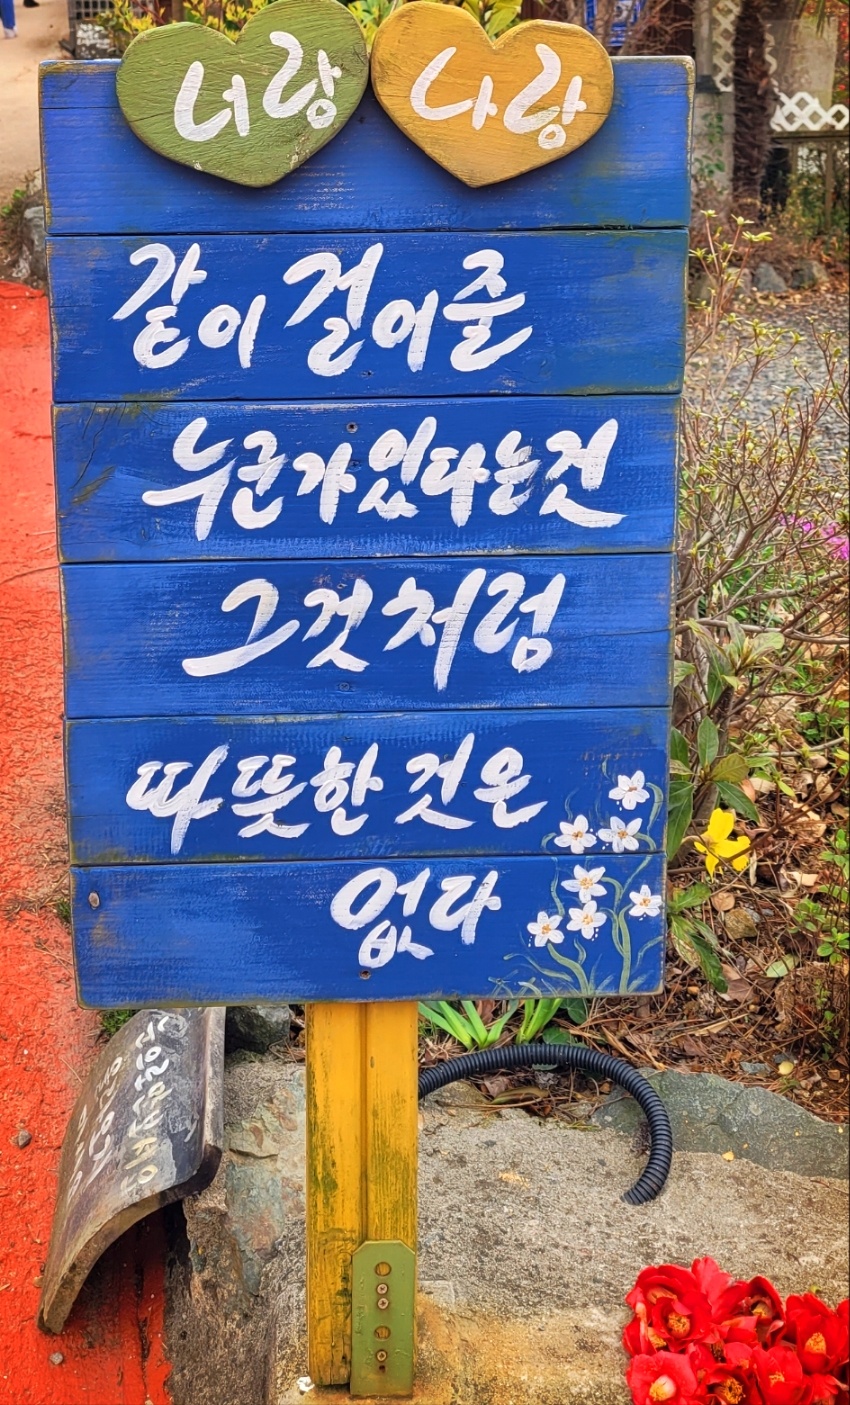 너랑 나랑
같이 걸어줄
누군가 있다는 것
그것처럼
따뜻한 것은
없다